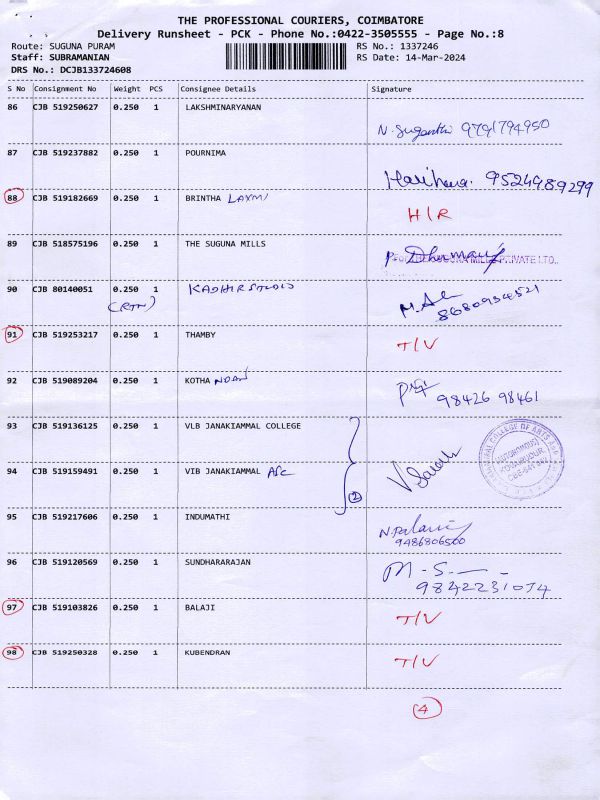 THE PROFESSIONAL COURIERS, COIMBATORE
Delivery Runsheet - PCK - Phone No.:0422-3505555 - Page No.:8
Route: SUGUNA PURAM RS No.: 1337246
Staff: SUBRAMANIAN RS Date: 14-Mar-2024
DRS No.: DCJB133724608
S No Consignment No Weight PCS Consignee Details Signature
86 CJB 519250627 0.250 1 LAKSHMINARYANAN
N. Suganthi 9791794950
87 CJB 519237882 0.250 1 POURNIMA
9524989299
88 CJB 519182669 0.250 1 BRINTHA LAXMI
H/R
89 CJB 518575196 0.250 1 THE SUGUNA MILLS
PRIVATE LTD.,
90 CJB 80140051 0.250 1 KADHIR STUDIO
(RTN) 8680934521
91 CJB 519253217 0.250 1 THAMBY
T/V
92 CJB 519089204 0.250 1 KOTHA NDAN
98426 98461
93 CJB 519136125 0.250 1 VLB JANAKIAMMAL COLLEGE
94 CJB 519159491 0.250 1 VIB JANAKIAMMAL ASC
2
95 CJB 519217606 0.250 1 INDUMATHI
9486806500
96 CJB 519120569 0.250 1 SUNDHARARAJAN
M.S.
9842231074
97 CJB 519103826 0.250 1 BALAJI
T/V
98 CJB 519250328 0.250 1 KUBENDRAN
T/V
4